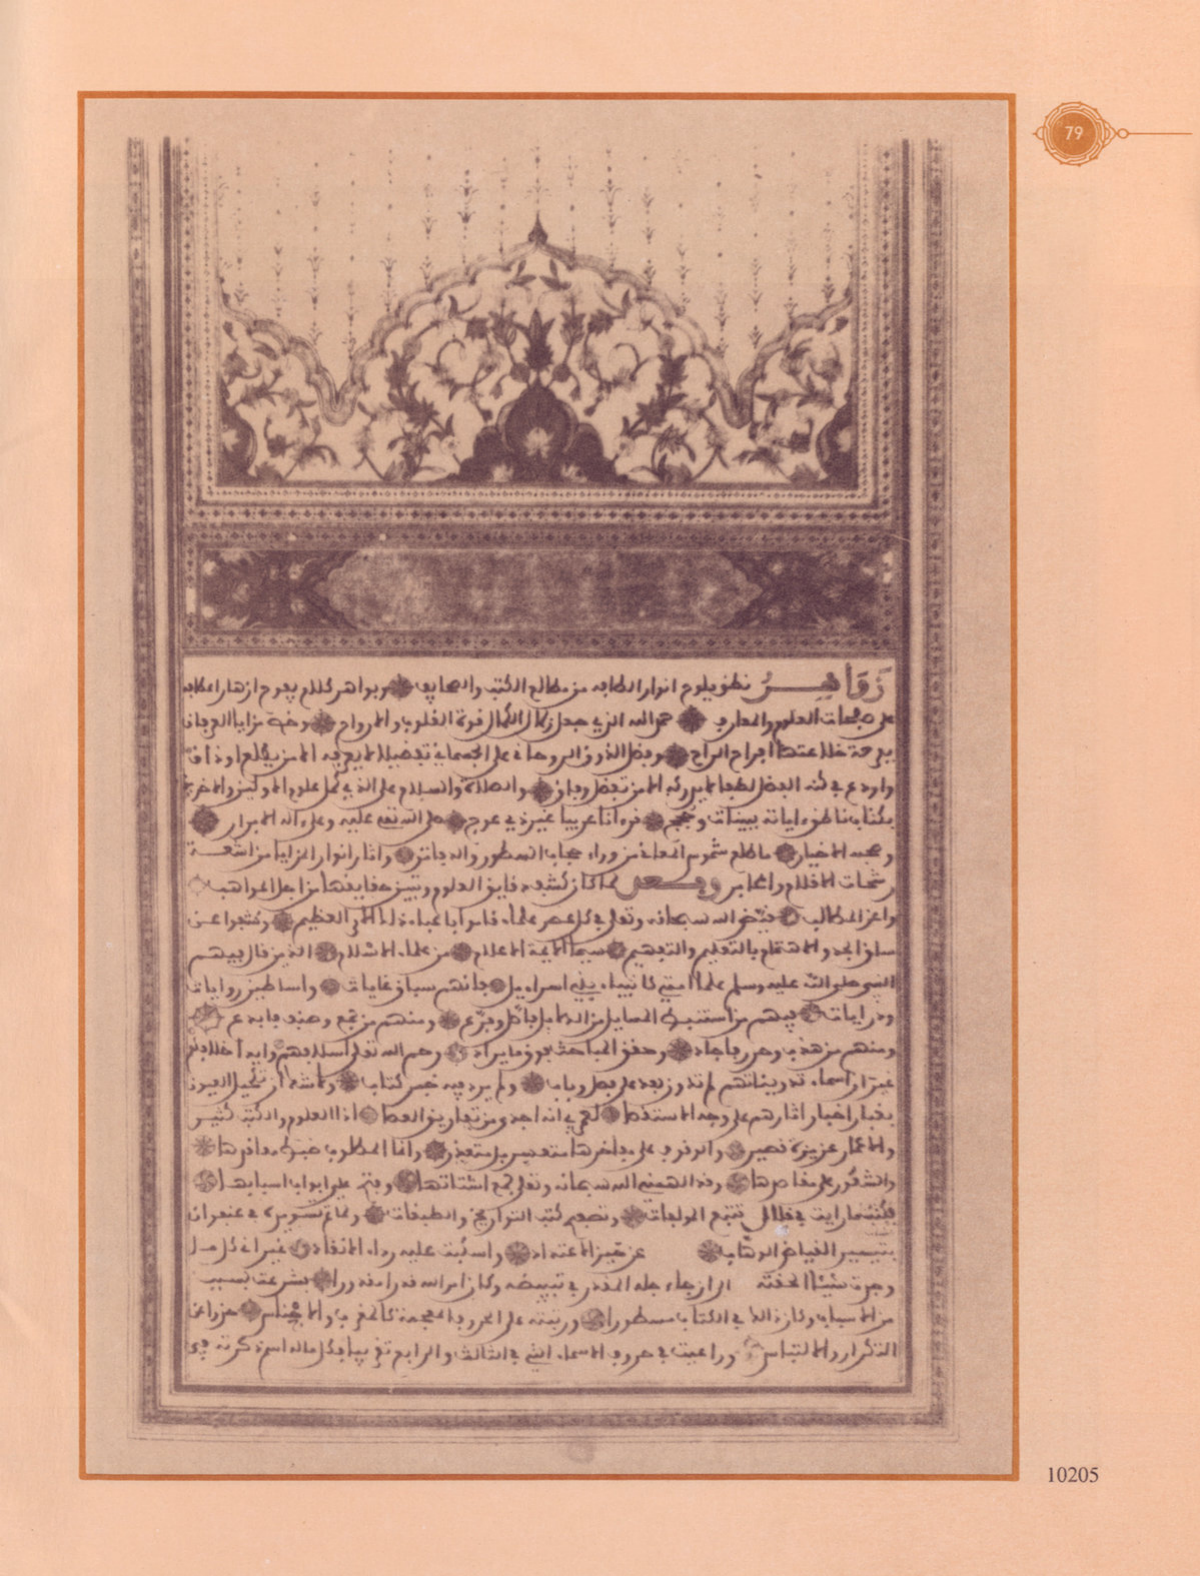 79
زواهر نطق يلوح انوار الطافه من مطالع الكتب والصحايف وبواهر كلام يفوح ازهار اعطافه
على صفحات العلوم والمعارف حمدا لله الذي جعل زلال الكمال قوة القلوب والارواح وخص مزايا العرفان
بفرحة خلا عنها افراح الراح وفضل الذوق الروحاني على الجسماني تفضيلا لا يعرفه الا من تضلع او ذاق
واودع في كنه الفضل لطفا لا يدركه الا من تفضل وفاق والصلاة والسلام على الذي كمل علوم الاولين والاخرين
بكتاب ناطق ءاياته بينات وحجج قرءانا عربيا غير ذي عوج صلى الله تعلى عليه وعلى ءاله الابرار
وصحبه الاخيار ما طلع شموس المعاني من وراء حجاب السطور والدفاتر وانار انوار المزايا من اشعة
رشحات الاقلام والمحابر وبعد لما كان كشف دقايق العلوم وتبيين حقايقها من اجل المواهب
واعز المطالب قيض الله سبحانه وتعلى في كل عصر علماء قاموا باعباء ذلك الامر العظيم وكشفوا عن
ساق الجد والاهتمام بالتعليم والتفهيم سيما الايمة الاعلام من علماء الاسلام الذين قال فيهم
النبي صلى الله عليه وسلم علماء امتي كانبياء بني اسراءيل فانهم سباق غايات واساطين روايات
ودرايات فمنهم من استنبط المسايل من الدلايل فاصل وفرع ومنهم من جمع وصنف فابدع
ومنهم من هذب وحرر فاجاد وحقق المباحث فوق ما يراد رحم الله تعلى اسلافهم وايد اخلافهم
غير ان اسماء تدويناتهم لم تدون بعد على فصل وباب ولم يرد فيه خبر كتاب ولا شك ان تكحيل العيون
بغبار اخبار ءاثارهم على وجه الاستقصا لعمري انه اجدى من تفاريق العصا اذ العلوم والكتب كثيرة
والاعمار عزيزة قصيرة والوقوف على تفاصيلها متعسر بل متعذر وانما المطلوب ضبط معاقدها
والشعور على مقاصدها وقد الهمني الله سبحانه وتعلى جمع اشتاتها وفتح علي ابواب اسبابها
فكتبت ما رايت في خلال تتبع المولفات وتصفح كتب التواريخ والطبقات ولما تم تسويده في عنفوان
بتيسير الفياض الوهاب عن حيز الاعتداد واسبلت عليه رداء الانقاد غير اني كلما
وجدت شيئا الحقته الى ان جاء اجله المقدر في تبييضه وكان امر الله قدرا مقدورا فشرعت بسبب
من الاسباب وكان ذلك في الكتاب مسطورا ورتبته على الحروف المعجمة كالمغرب والاساس حذرا عن
التكرار والالتباس وراعيت في حروف الاسماء الى الثالث والرابع ترتيبا فكل ما له اسم ذكرته في
10205